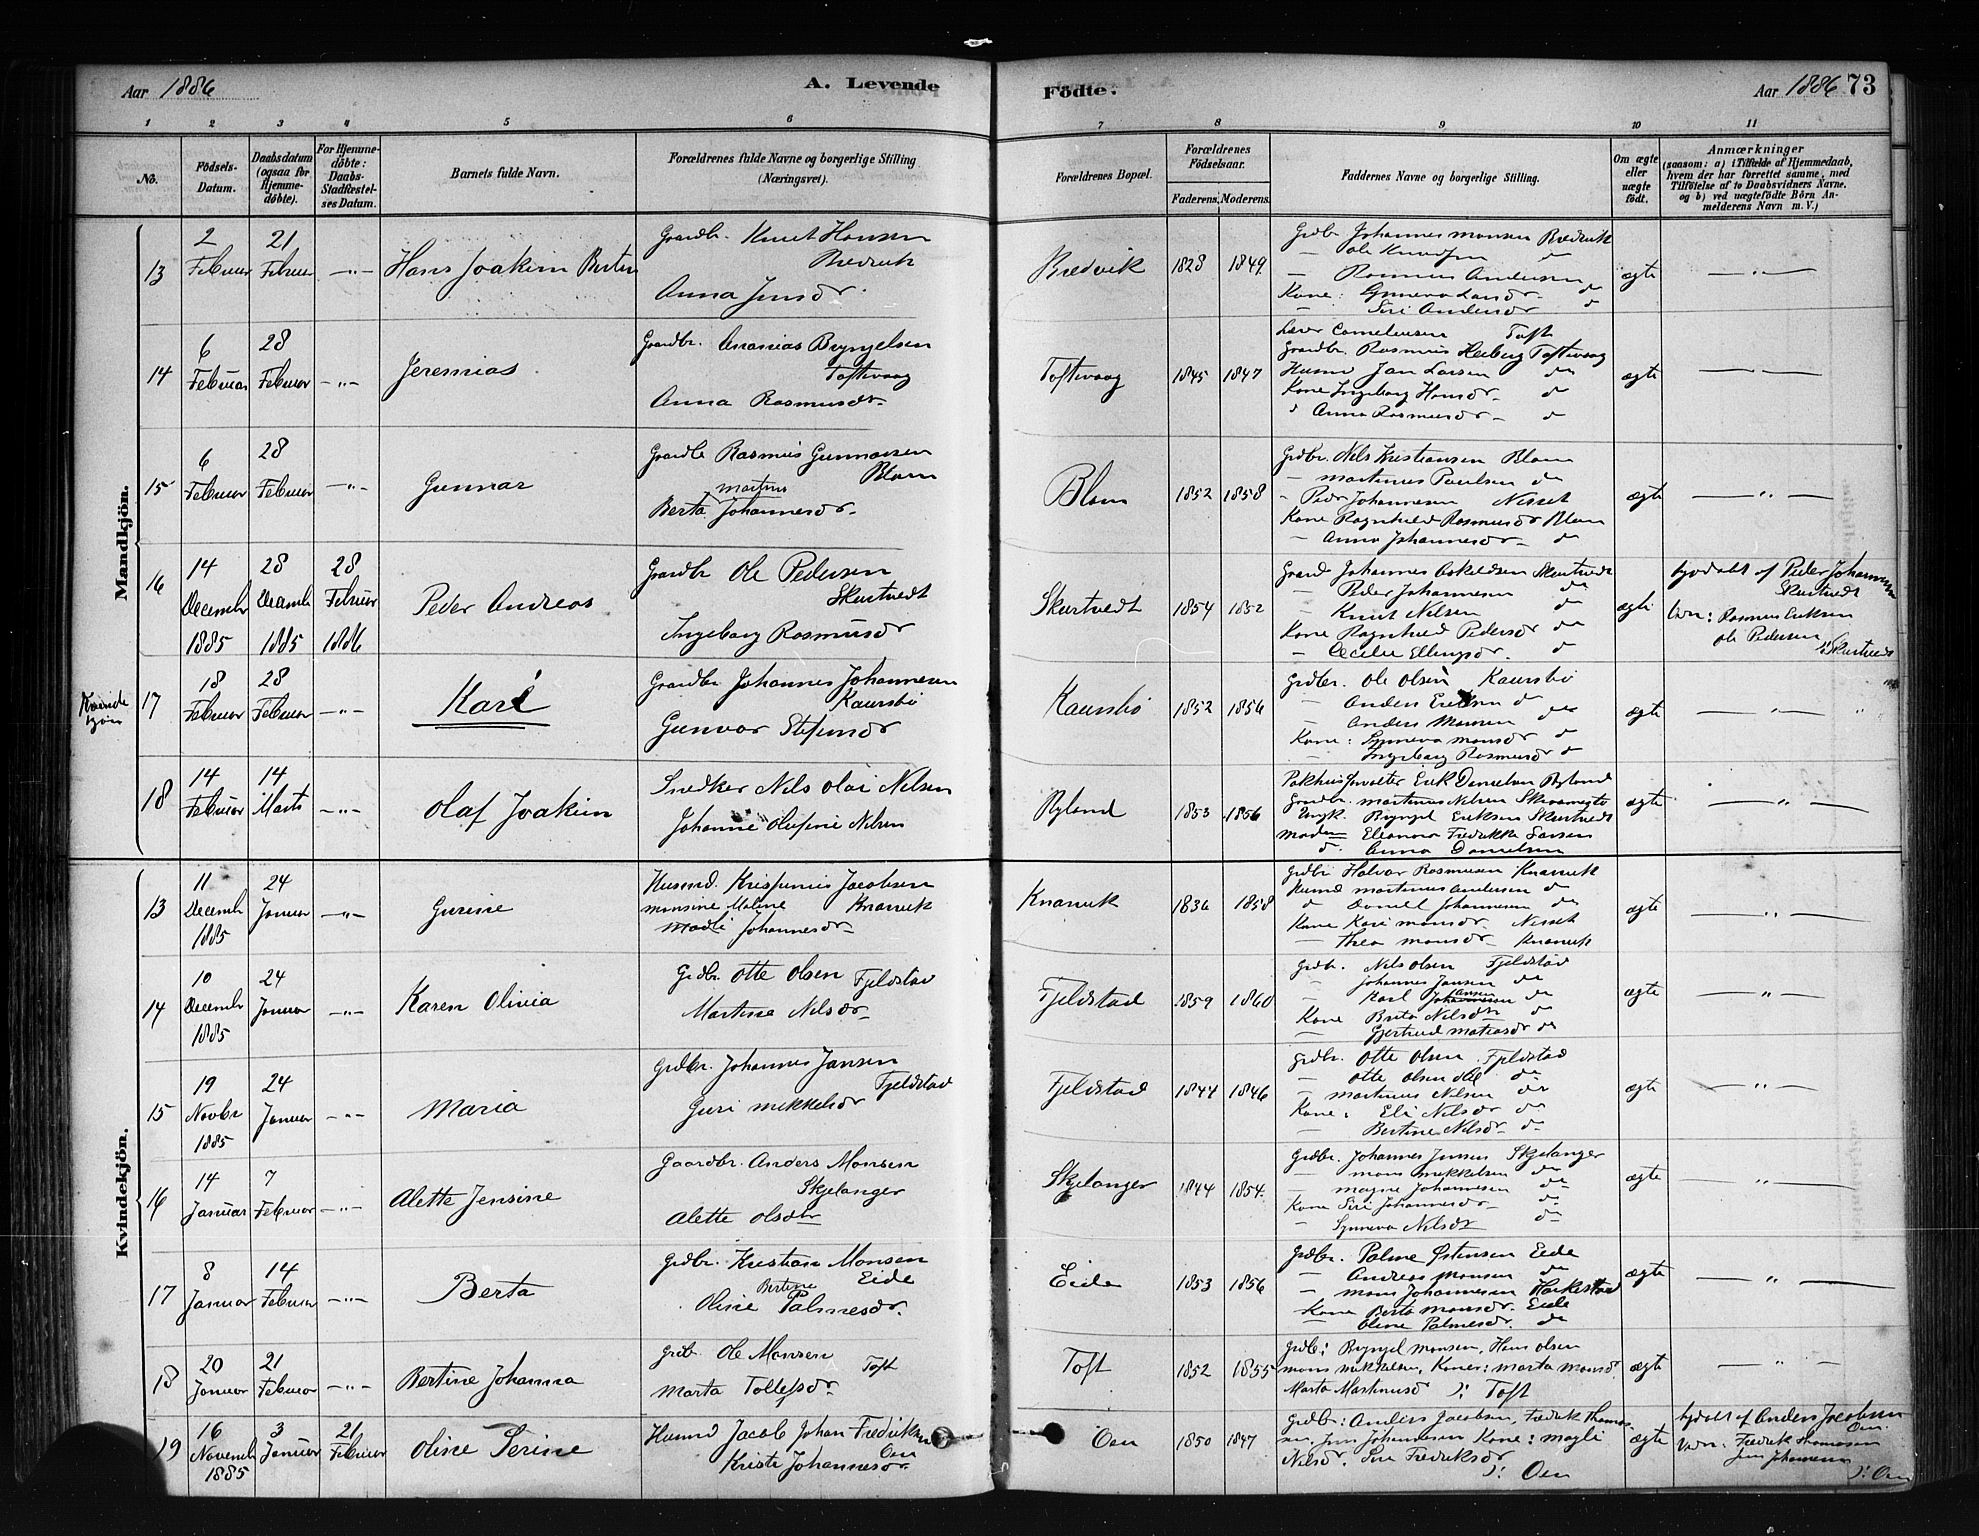 Aar 1886
A. Levende
Födte.
Aar 1886 73
1 2 3 4 5 6 7 8 9 10 11
No.
Födsels-Datum.
Daabsdatum (ogsaa for Hjemmedöbte).
For Hjemmedöbte: Daabs-Stadfæstelses Datum.
Barnets fulde Navn.
Forældrenes fulde Navne og borgerlige Stilling (Næringsvei).
Forældrenes Bopæl.
Forældrenes Födselsaar.
Faderens. Moderens.
Faddernes Navne og borgerlige Stilling.
Om ægte eller uægte födt.
Anmærkninger
(saasom: a) i Tilfælde af Hjemmedaab, hvem der har forrettet samme, med Tilföielse af to Daabsvidners Navne, og b) ved uægtefödte Börn Anmelderens Navn m. V.)
Mandkjön.
13
2 Februar
21 Februar
Hans Joakim
Gaardbr. Knut Hansen
Bredvik
Anna Jensdr
Bredvik
1828 1849
Grdbr. Johannes Monsen Bredvik
Ole Knudsen do
Rasmus Andersen
Kone: Synneva Larsdr do
Siri Andersdr do
ægte
14
6 Februar
28 Februar
Jeremias
Gaardbr. Ananias Brynjelsen
Toftevaag
Anna Rasmusdr
Toftevaag
1845 1847
Lærer Corneliusen Toft
Gaardbr. Rasmus Heiberg Toftevaag
Husmd Jan Larsen do
Kone Ingeborg Hansdr do
d Anna Rasmusdr do
ægte
15
6 Februar
28 Februar
Gunnar
Gaardb Rasmus Gunnarsen
Blom
Martins
Berta Johannesdr
Blom
1852 1858
Grdbr. Nils Kristiansen Blom
Martinus Paulsen do
Peder Johannesen Nisset
Kone Ragnhild Rasmusdr Blom
Anna Johannesdr do
ægte
16
14 December 1885
28 Decemb 1885
28 Februar 1886
Peder Andreas
Gaardbr Ole Pedersen
Skurtvedt
Ingeborg Rasmusdr
Skurtvedt
1854 1852
Gaard Johannes Askeldsen Skurtvedt
Peder Johannesen do
Knut Nilsen do
Kone Ragnhild Pedersdr do
Cecilie Ellingsdr. do
ægte
hjdøbt af Peder Johannesen
Skurtvedt
Vidn: Rasmus Eriksen
Ole Pedersen
Skurtvedt
Kvinde
kjøn
17
18 Februar
28 Februar
Kari
Gaardbr Johannes Johannesen
Kaursbö
Gunvor Stefensdr
Kaursbö
1852 1856
Grdbr. Ole Olsen Kaursbö
Anders Eriksen d
Anders Monsen do
Kone: Synneva Monsdr do
Ingeborg Rasmusdr do
ægte
18
14 Februar
14 Marts
Olaf Joakim
Snedker Nils Olai Nilsen
Johanne Olufine Nilsen
Ryland
1853 1856
Pakhusforvalter Erik Danielsen Ryland
Gaardbr. Martinus Nilsen
Ungk. Bryngel Eriksen Skurtvedt
Madm Eleonora Fredrikke Larsen
d. Anna Danielsen
ægte
Kvindekjön.
13
11 Decemb 1885
24 Januar
Gurine
Husmd. Krispinus Jacobsen
Monsine Malene Knarvik
Madli Johannesdr
Knarvik
1836 1858
Grdbr Halvor Rasmusen Knarvik
Husmd Martinus Andersen do
d Daniel Johannesen do
Kone Kari Monsdr Nisset
Thea Monsdr Knarvik
ægte
14
10 Decemb 1885
24 Januar
Karen Olivia
Grdbr. Otte Olsen Fjeldstad
Martine Nilsdr
Fjeldstad
1859 1860
Grdbr. Nils Olsen Fjeldstad
Johannes Jansen do
Karl Jansen do
Kone Brita Nilsdtr do
Gjertrud Matiasdr do
ægte
15
19 Novbr 1885
24 Januar
Maria
Grdbr. Johannes Jansen
Fjeldstad
Guri Mikkelsdr
Fjeldstad
1844 1846
Grdbr. Otte Olsen Fjeldstad
Otte Olsen do
Martinus Nilsen do
Kone: Eli Nilsdr do
Bertine Nilsdr do
ægte
16
14 Januar
7 Februar
Alette Jensine
Gaardbr. Anders Monsen
Skjelanger
Alette Olsdtr
Skjelanger
1844 1854
Grdbr. Johannes Jensen Skjelanger
Mons Mikkelsen do
Magne Johannesen do
Kone Siri Johannesdr do
Synneva Nilsdr do
ægte
17
8 Januar
14 Februar
Berta
Grdbr. Kristian Monsen
Eide
Bertine
Oline Palmesdr.
Eide
1853 1856
Grdbr. Palme Østensen Eide
Andreas Monsen do
Mons Johannesen Haakestad
Kone Berta Monsdr. Eide
Oline Palmesdr. do
ægte
18
20 Januar
21 Februar
Bertine Johanna
Grdb. Ole Monsen
Toft
Marta Tollefsdr
Toft
1852 1855
Grdb: Bryngel Monsen, Hans Olsen
Mons Mikkelsen, Kone: Marta Monsd.
Marta Martinusd Toft
ægte
19
16 Novemb 1885
3 Januar
21 Februar
Oline Serine
Husmd Jacob Johan Fredriksen
Oen
Kristi Johannesdr
Oen
1850 1847
Grdbr: Anders Jacobsen, Fredrik Thomas
sen, Jens Johannesen Kone: Magli
Nilsdr, Siri Fredriksdr
Oen
ægte
hjdøbt af Anders Jacobsen
Oen.
Vidn: Fredrik Thomasen
Jens Johannesen
Oen